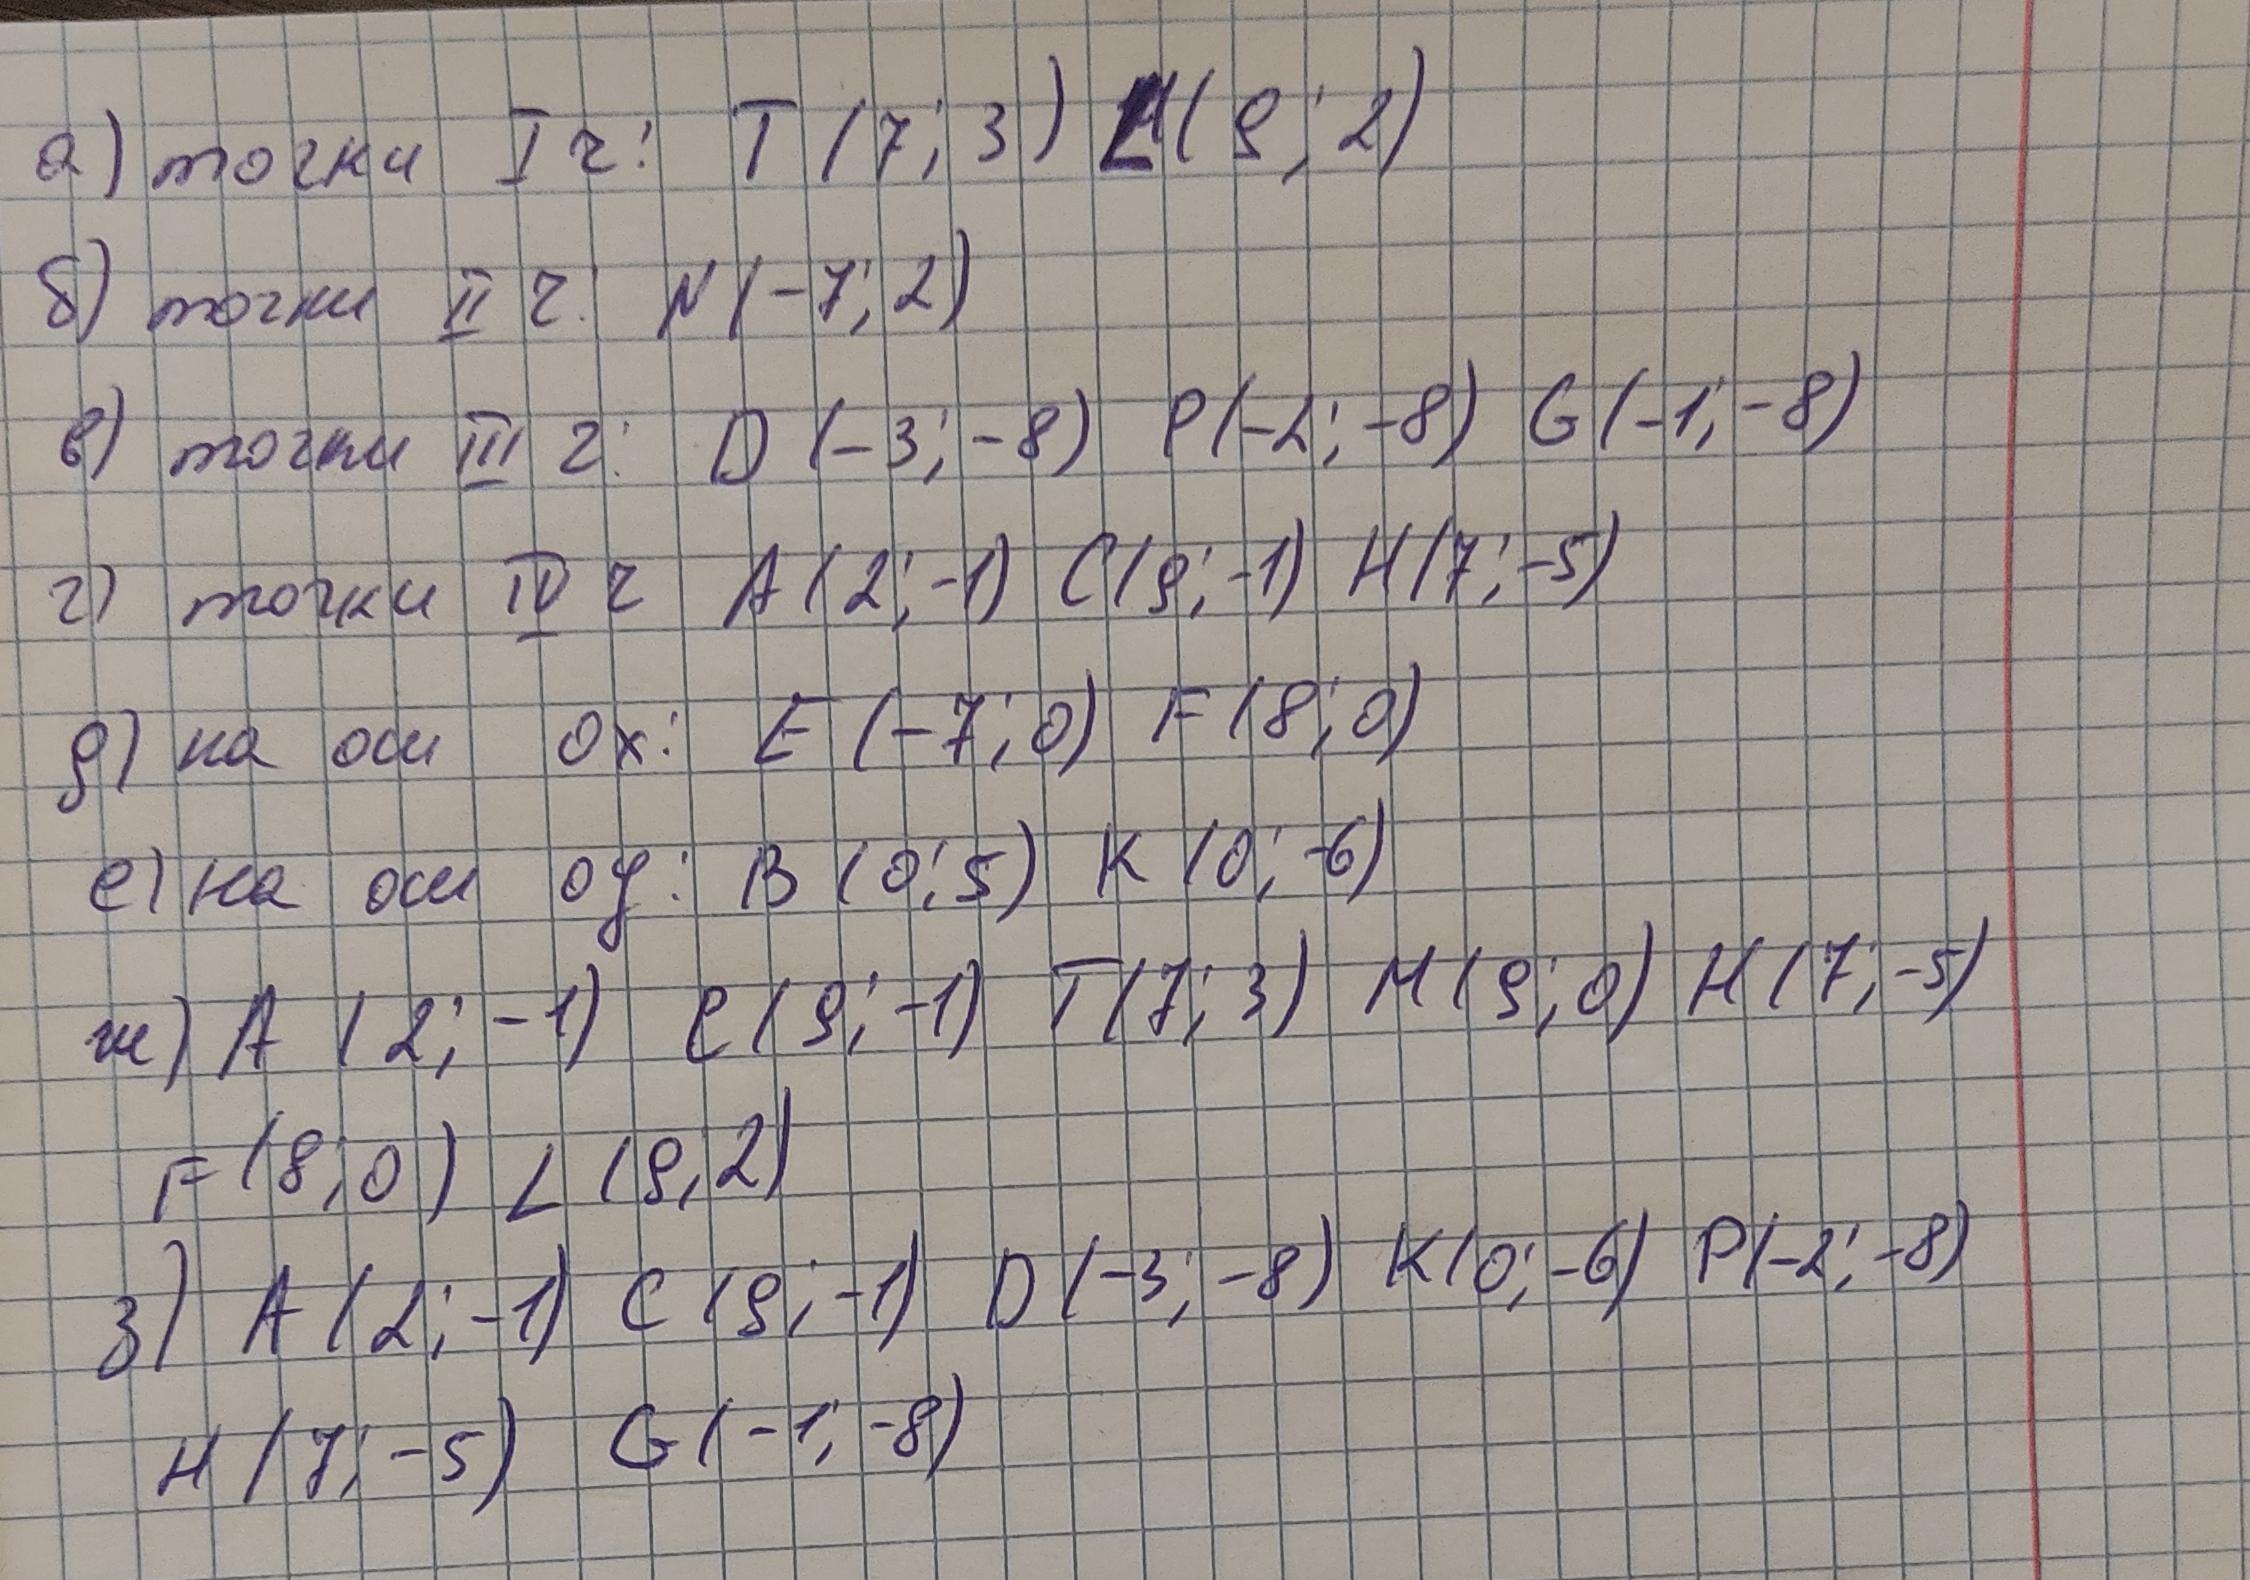 а) точки I ч: T (7; 3) L (9; 2)
б) точки II ч: N (-7; 2)
в) точки III ч: D (-3; -8) P (-2; -8) G (-1; -8)
г) точки IV ч A (2; -1) C (9; -1) H (7; -5)
д) на оси Ох: E (-7; 0) F (8; 0)
е) на оси Оу: B (0; 5) K (0; -6)
ж) A (2; -1) C (9; -1) T (7; 3) M (9; 0) H (7; -5)
F (8; 0) L (9; 2)
з) A (2; -1) C (9; -1) D (-3; -8) K (0; -6) P (-2; -8)
H (7; -5) G (-1; -8)